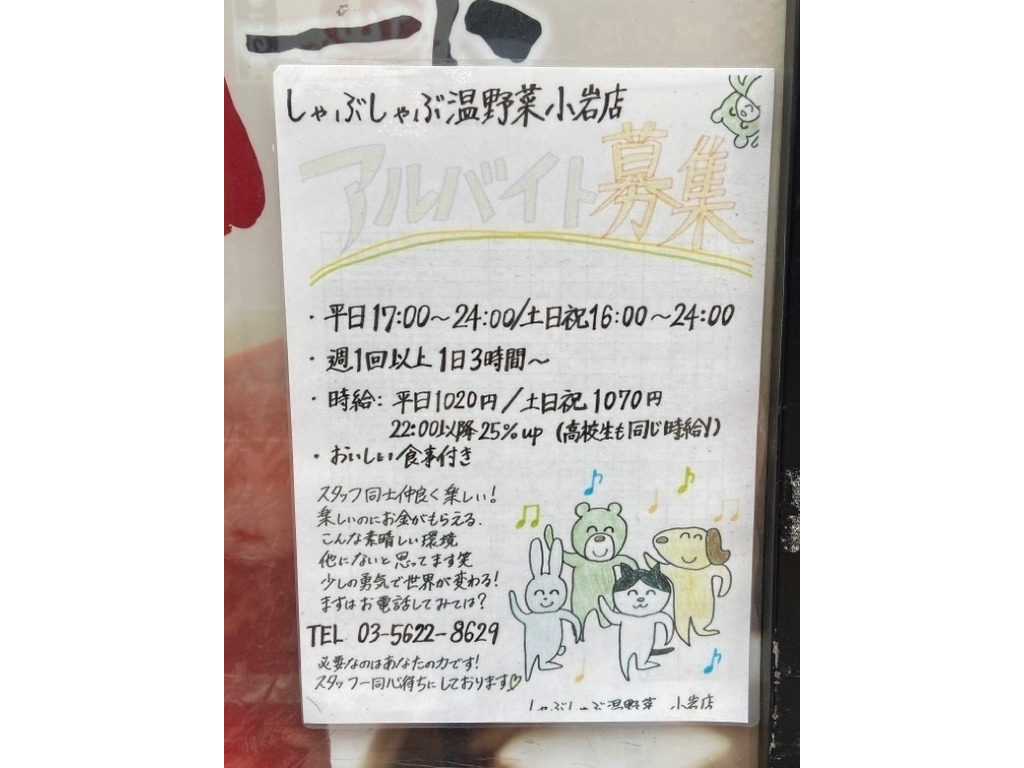 しゃぶしゃぶ温野菜小岩店
アルバイト募集
・平日17:00〜24:00/土日祝16:00〜24:00
・週1回以上1日3時間〜
・時給:平日1020円/土日祝1070円
22:00以降25%up (高校生も同じ時給!)
・おいしい食事付き
スタッフ同士仲良く楽しい!
楽しいのにお金がもらえる.
こんな素晴しい環境
他にないと思ってます笑
少しの勇気で世界が変わる!
まずはお電話してみては?
TEL 03-5622-8629
必要なのはあなたの力です!
スタッフ一同心待ちにしております♡
しゃぶしゃぶ温野菜 小岩店